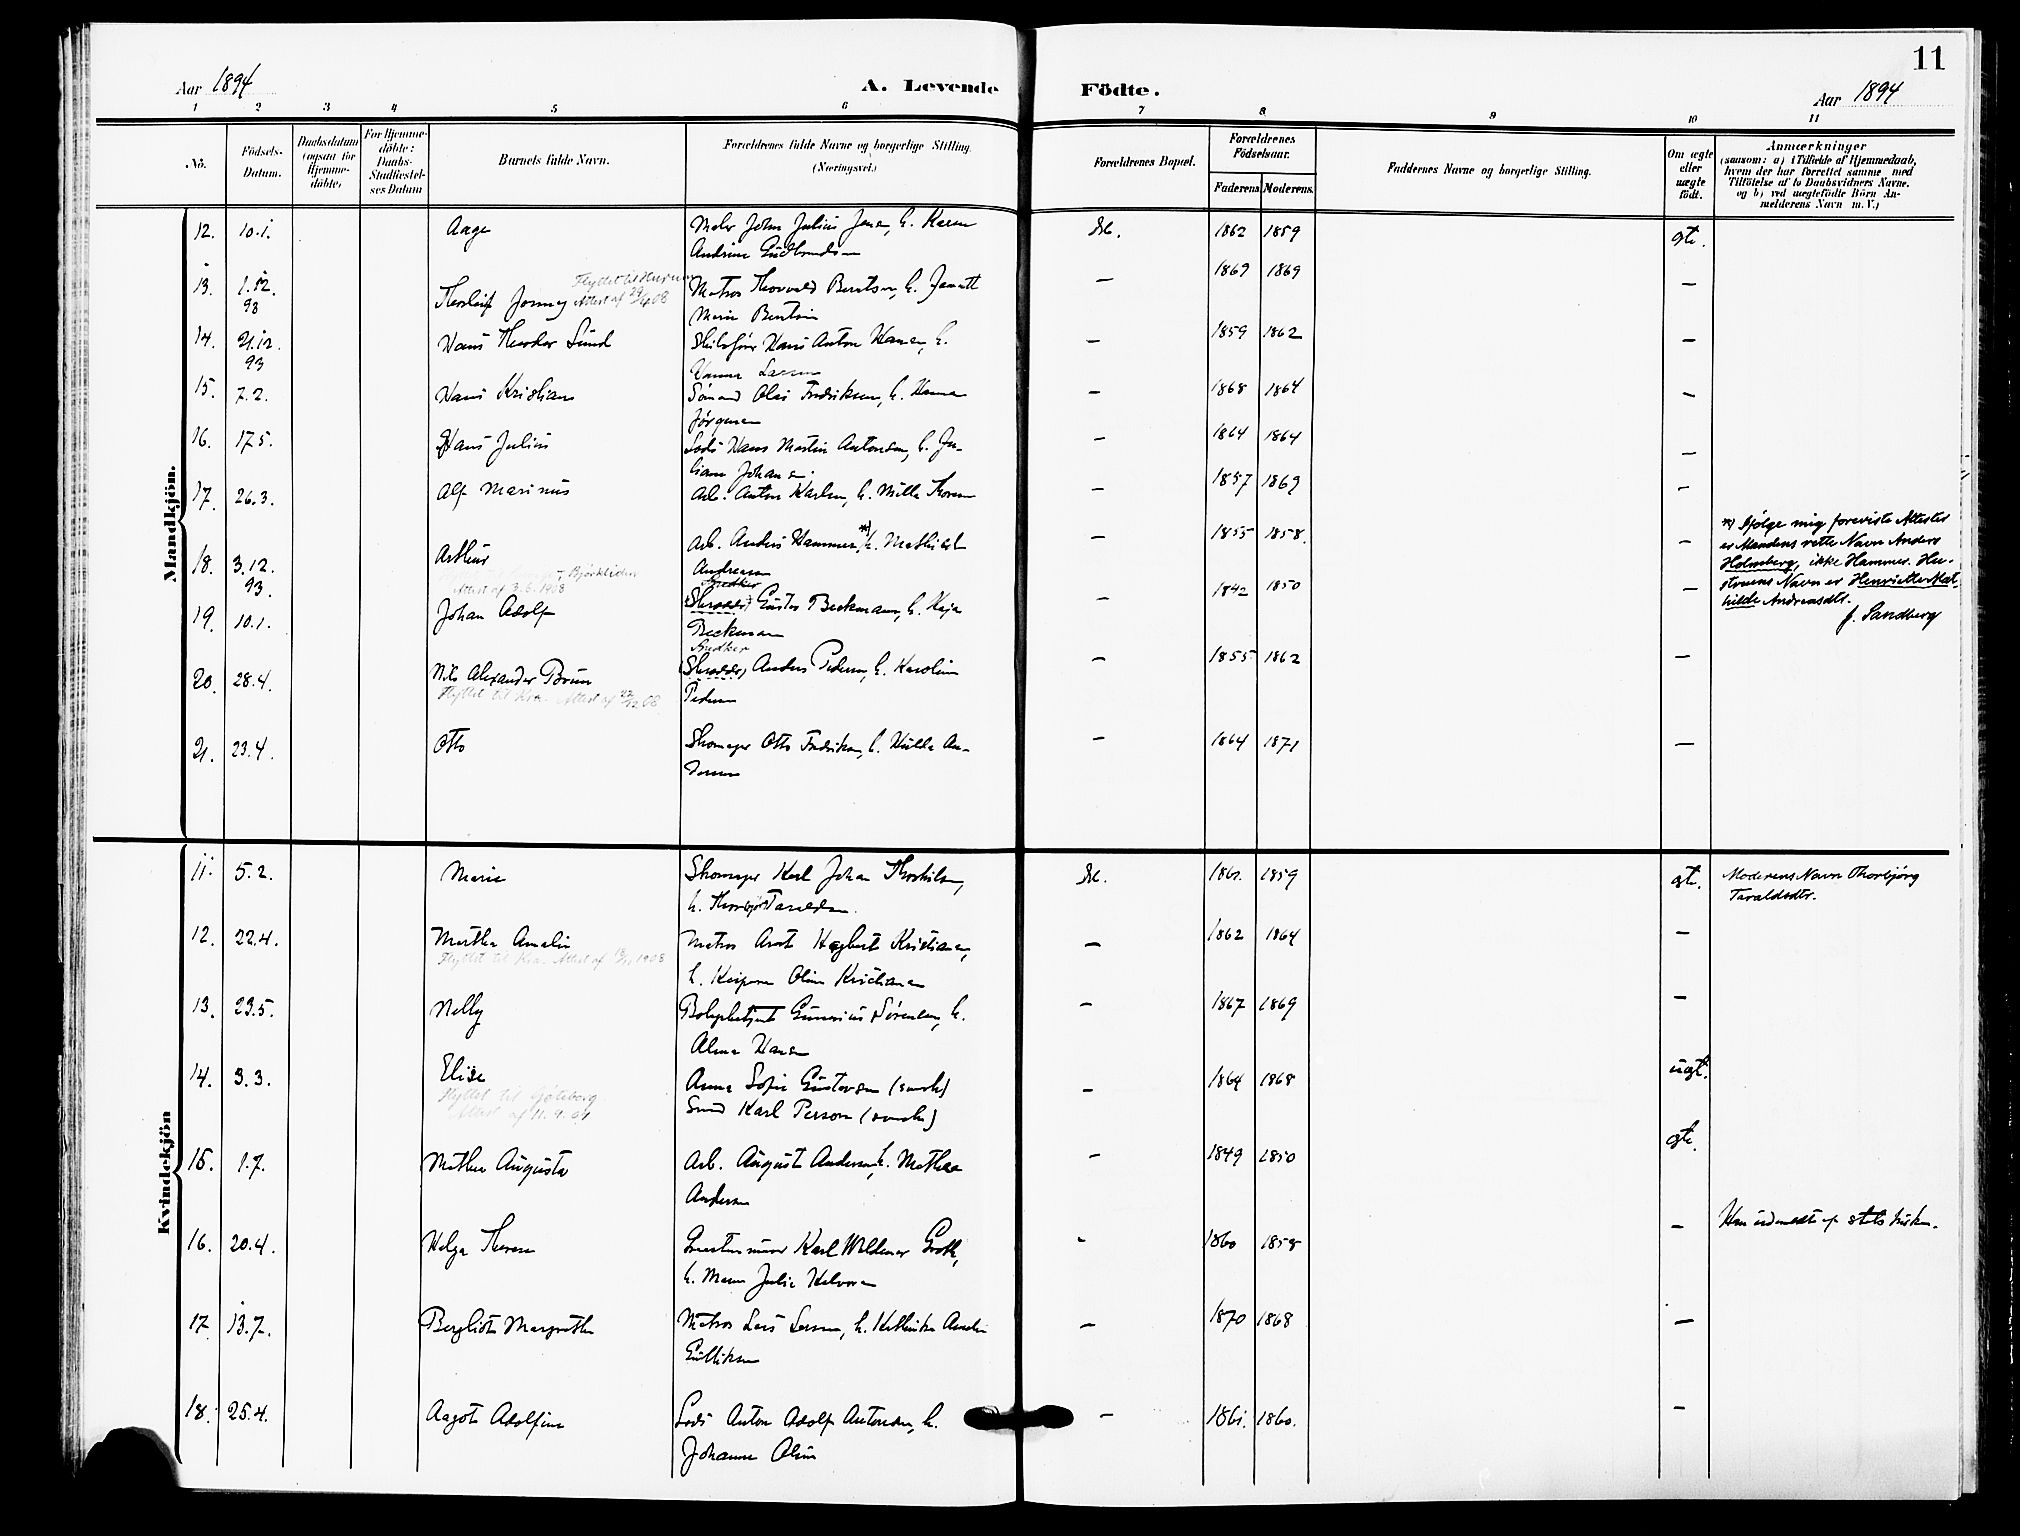 11
Aar 1894
A. Levende Födte.
Aar 1894
1 2 3 4 5 6 7 8 9 10 11
No.
Födsels-Datum.
Daabsdatum (ogsaa for Hjemme-döbte)
For Hjemme-döbte: Daabs-Stadfæstel-ses Datum
Barnets fulde Navn.
Forældrenes fulde Navne og borgerlige Stilling. (Næringsvei.)
Forældrenes Bopæl.
Forældrenes Födselsaar.
Faderens. Moderens.
Faddernes Navne og borgerlige Stilling.
Om ægte eller uægte födt.
Anmærkninger
(saasom: a) i Tilfælde af Hjemmedaab,
hvem der har forrettet samme med
Tilföielse af to Daabsvidners Navne,
og b) ved uægtefödte Börn An-
melderens Navn m. V.)
Mandkjön.
12. 10.1. Aage Maler John Julius Jensen, h. Karen 1862 1859 gte.
Andrine Gudbrandsen
Flyttet til Hurum
13. 1.12. 93 Thorleif Attest af 29/4 08 Matros Thorvald Berntsen, h. 1869 1869 —
Marie Berntsen
14. 21.12. 93 Hans Theodor Lund Hans Anton Hansen, h. — 1859 1862 —
Hanna Larsen
15. 7.2. Hans Kristian Sömand Olai Fredriksen, h. Hanna — 1868 1864 —
Jørgensen
16. 17.5. Hans Julius Lods Hans Martin Antonsen, h. Ju- — 1864 1864 —
liane Johansen
17. 26.3. Alf Marinus Arb. Anton Karlsen, h. Milla Thoresen — 1857 1869 —
18. 3.12. 93. Arthur Arb. Anders Hammer, *) h. Mathilde — 1855 1858. —
Andreasen
Attest af 3.6.1908
*) Ifølge mig foreviste Attester
er Mandens rette Navn Anders
Holmberg, ikke Hammer. Hu-
struens Navn er Henriette Mat-
hilde Andreasdtr.
J. Sandberg
Bødker
19. 10.1. Johan Adolf (Skrædder) Gustav Beckman, h. Kaja — 1842 1850 —
Beckman
Bødker
20. 28.4. Nils Alexander Brun (Skrædder) Anders Pedersen, h. Karoline — 1855 1862 —
Flyttet til Kra. Attest af 08 Pedersen
21. 23.4. Otto Skomager Otto Fredriksen, h. Hulda An- — 1864 1871 —
dersen
Kvindekjön
11. 5.2. Marie Skomager Karl Johan Thorkilsen, 1859 gte. Moderens Navn Thorbjørg
h. Thorbjør Taraldsen. Taraldsdtr.
12. 22.4. Martha Amalie Matros Arnt Hagbart Kristiansen, — 1862 1864 —
Flyttet til Kra. Attest af 1908
h. Oline Kristiansen
13. 23.5. Nelly Gunerius Sørensen, h. — 1867 1869 —
Alma Hansen
14. 3.3. Elise Anna Sofie Gustavsen (svensk) — 1864 1868 uægt.
Flyttet til Göteborg. Smed Karl Person (svensk)
Attest af 11.9.
15. 1.7. Mathea Augusta Arb. August Andersen, h. Mathea — 1849 1850 gte.
Andersen
16. 20.4. Helga Therese Karl Waldemar Groth, 1860 1858 —
h. Maren Julie Halvorsen
17. 13.7. Bergliot Margrethe Matros Lars Larsen, h. Kathinka Amalie — 1870 1868 —
Gulliksen
18. 25.4. Aagot Adolfine Lods Anton Adolf Antonsen, h. — 1861. 1860. —
Johanne Oline